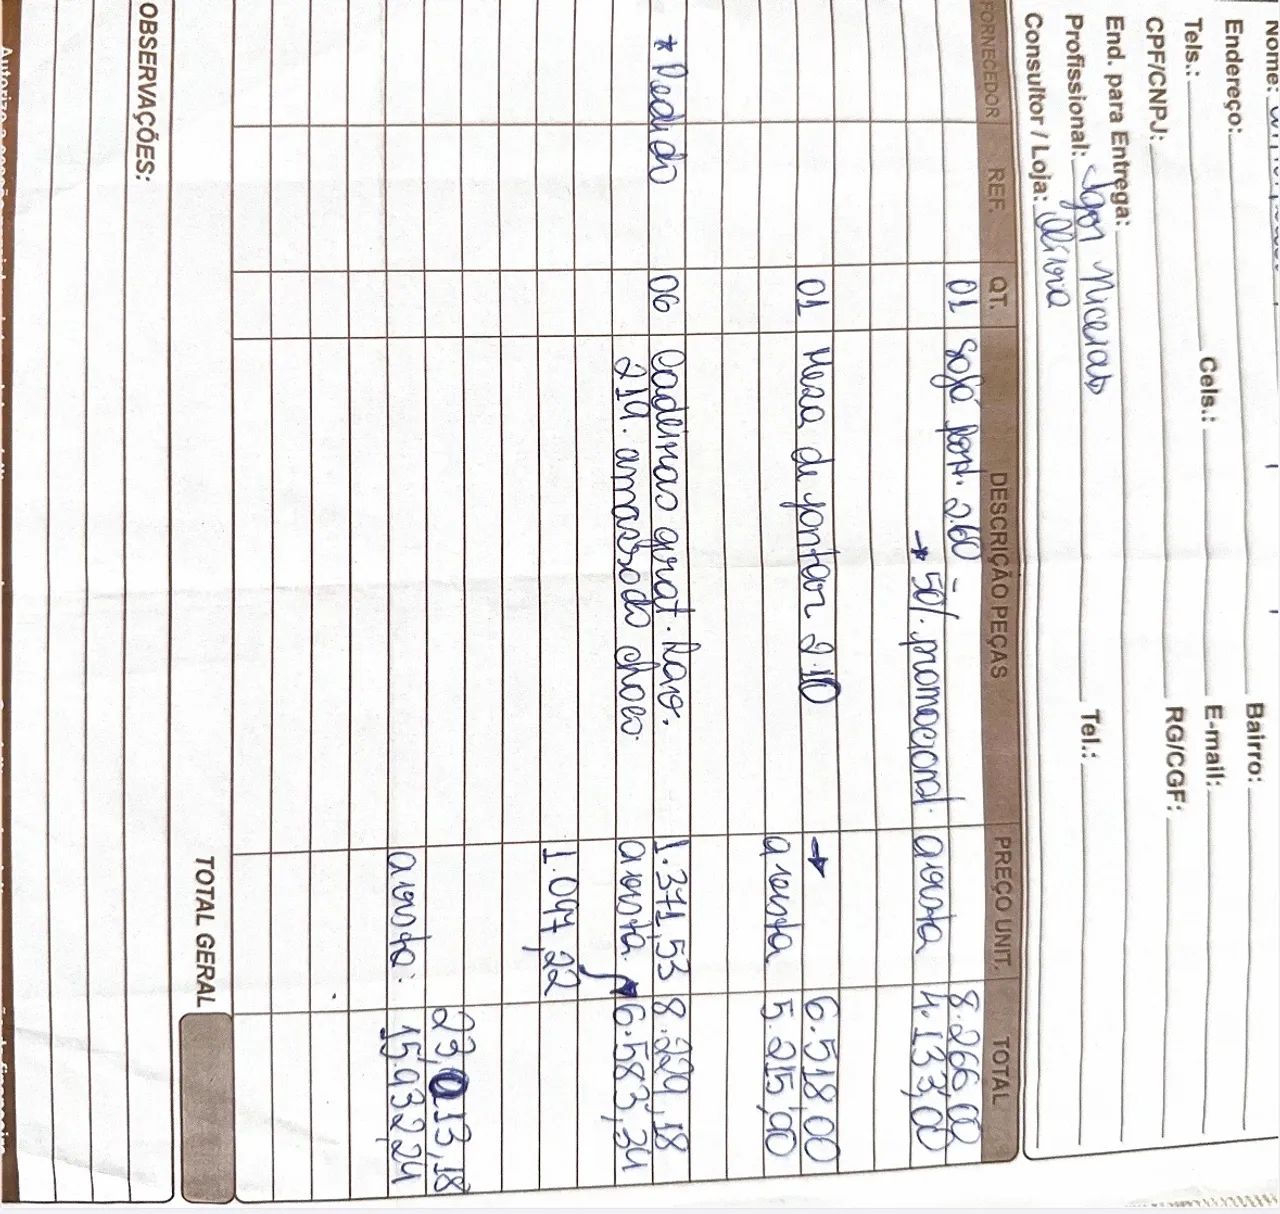 Nome:
Endereço: Bairro:
Tels.: Cels.: E-mail:
CPF/CNPJ: RG/CGF:
End. para Entrega:
Profissional: Igor Tel.:
Consultor / Loja:
FORNECEDOR REF. QT. DESCRIÇÃO PEÇAS PREÇO UNIT. TOTAL
01 Sofá 2.60 8.266,00
* 50% promocional. avista 4.133,00
01 Mesa de jantar 2.10 → 6.518,00
avista 5.215,00
* Pedido 06 Cadeiras girat. 1.371,53 8.229,18
219. amassado avista 6.583,34
1.097,22
23.013,18
avista: 15.932,24
TOTAL GERAL
OBSERVAÇÕES: